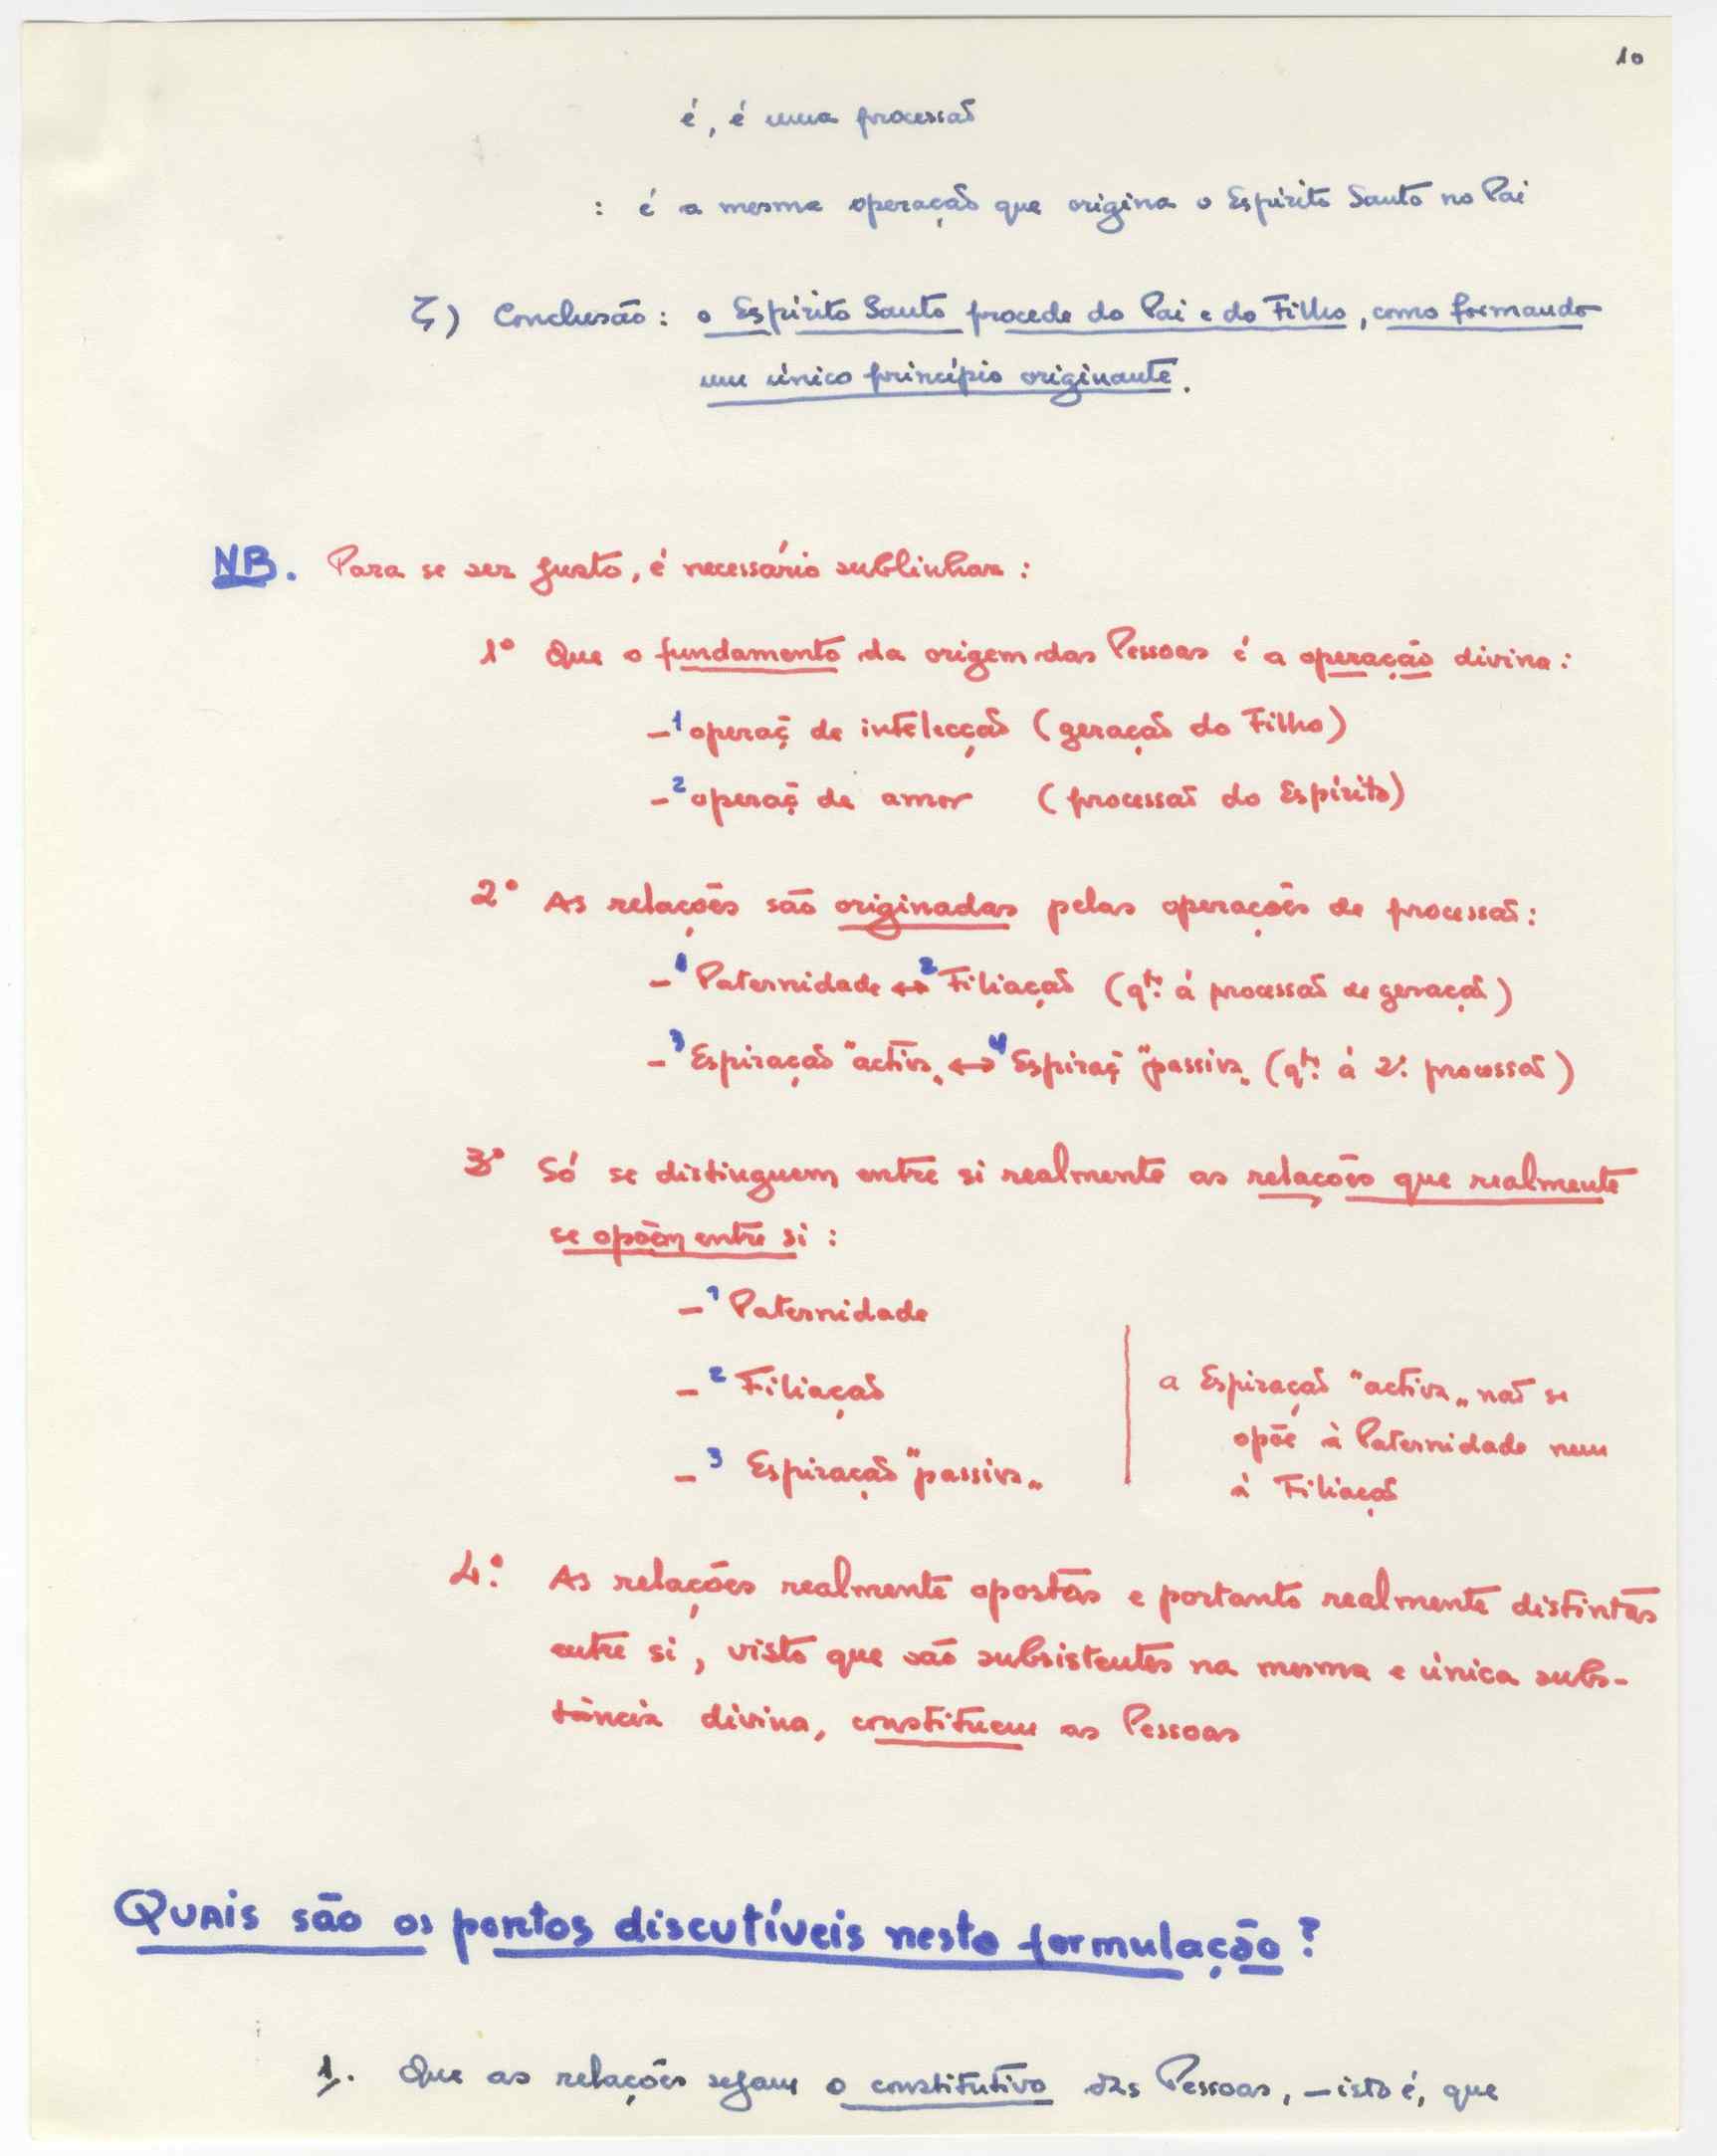 10
é, é uma processão
: é a mesma operação que origina o Espírito Santo no Pai
ζ) Conclusão: o Espírito Santo procede do Pai e do Filho, como formando
um único princípio originante.
NB. Para se ser justo, é necessário sublinhar:
1º Que o fundamento da origem das Pessoas é a operação divina:
-¹ operaç̃ de intelecção (geração do Filho)
-² operaç̃ de amor (processão do Espírito)
2º As relações são originadas pelas operações de processão:
-¹ Paternidade ↔ ² Filiação (qto. à processão de geração)
-³ Espiração "activa" ↔ ⁴ Espiraç̃ "passiva" (qto. à 2ª processão)
3º Só se distinguem entre si realmente as relações que realmente
se opõem entre si:
-¹ Paternidade
-² Filiação
-³ Espiração "passiva"
a Espiração "activa" não se
opõe à Paternidade nem
à Filiação
4º As relações realmente opostas e portanto realmente distintas
entre si, visto que são subsistentes na mesma e única subs-
tância divina, constituem as Pessoas
Quais são os pontos discutíveis nesta formulação?
1. Que as relações sejam o constitutivo das Pessoas, – isto é, que